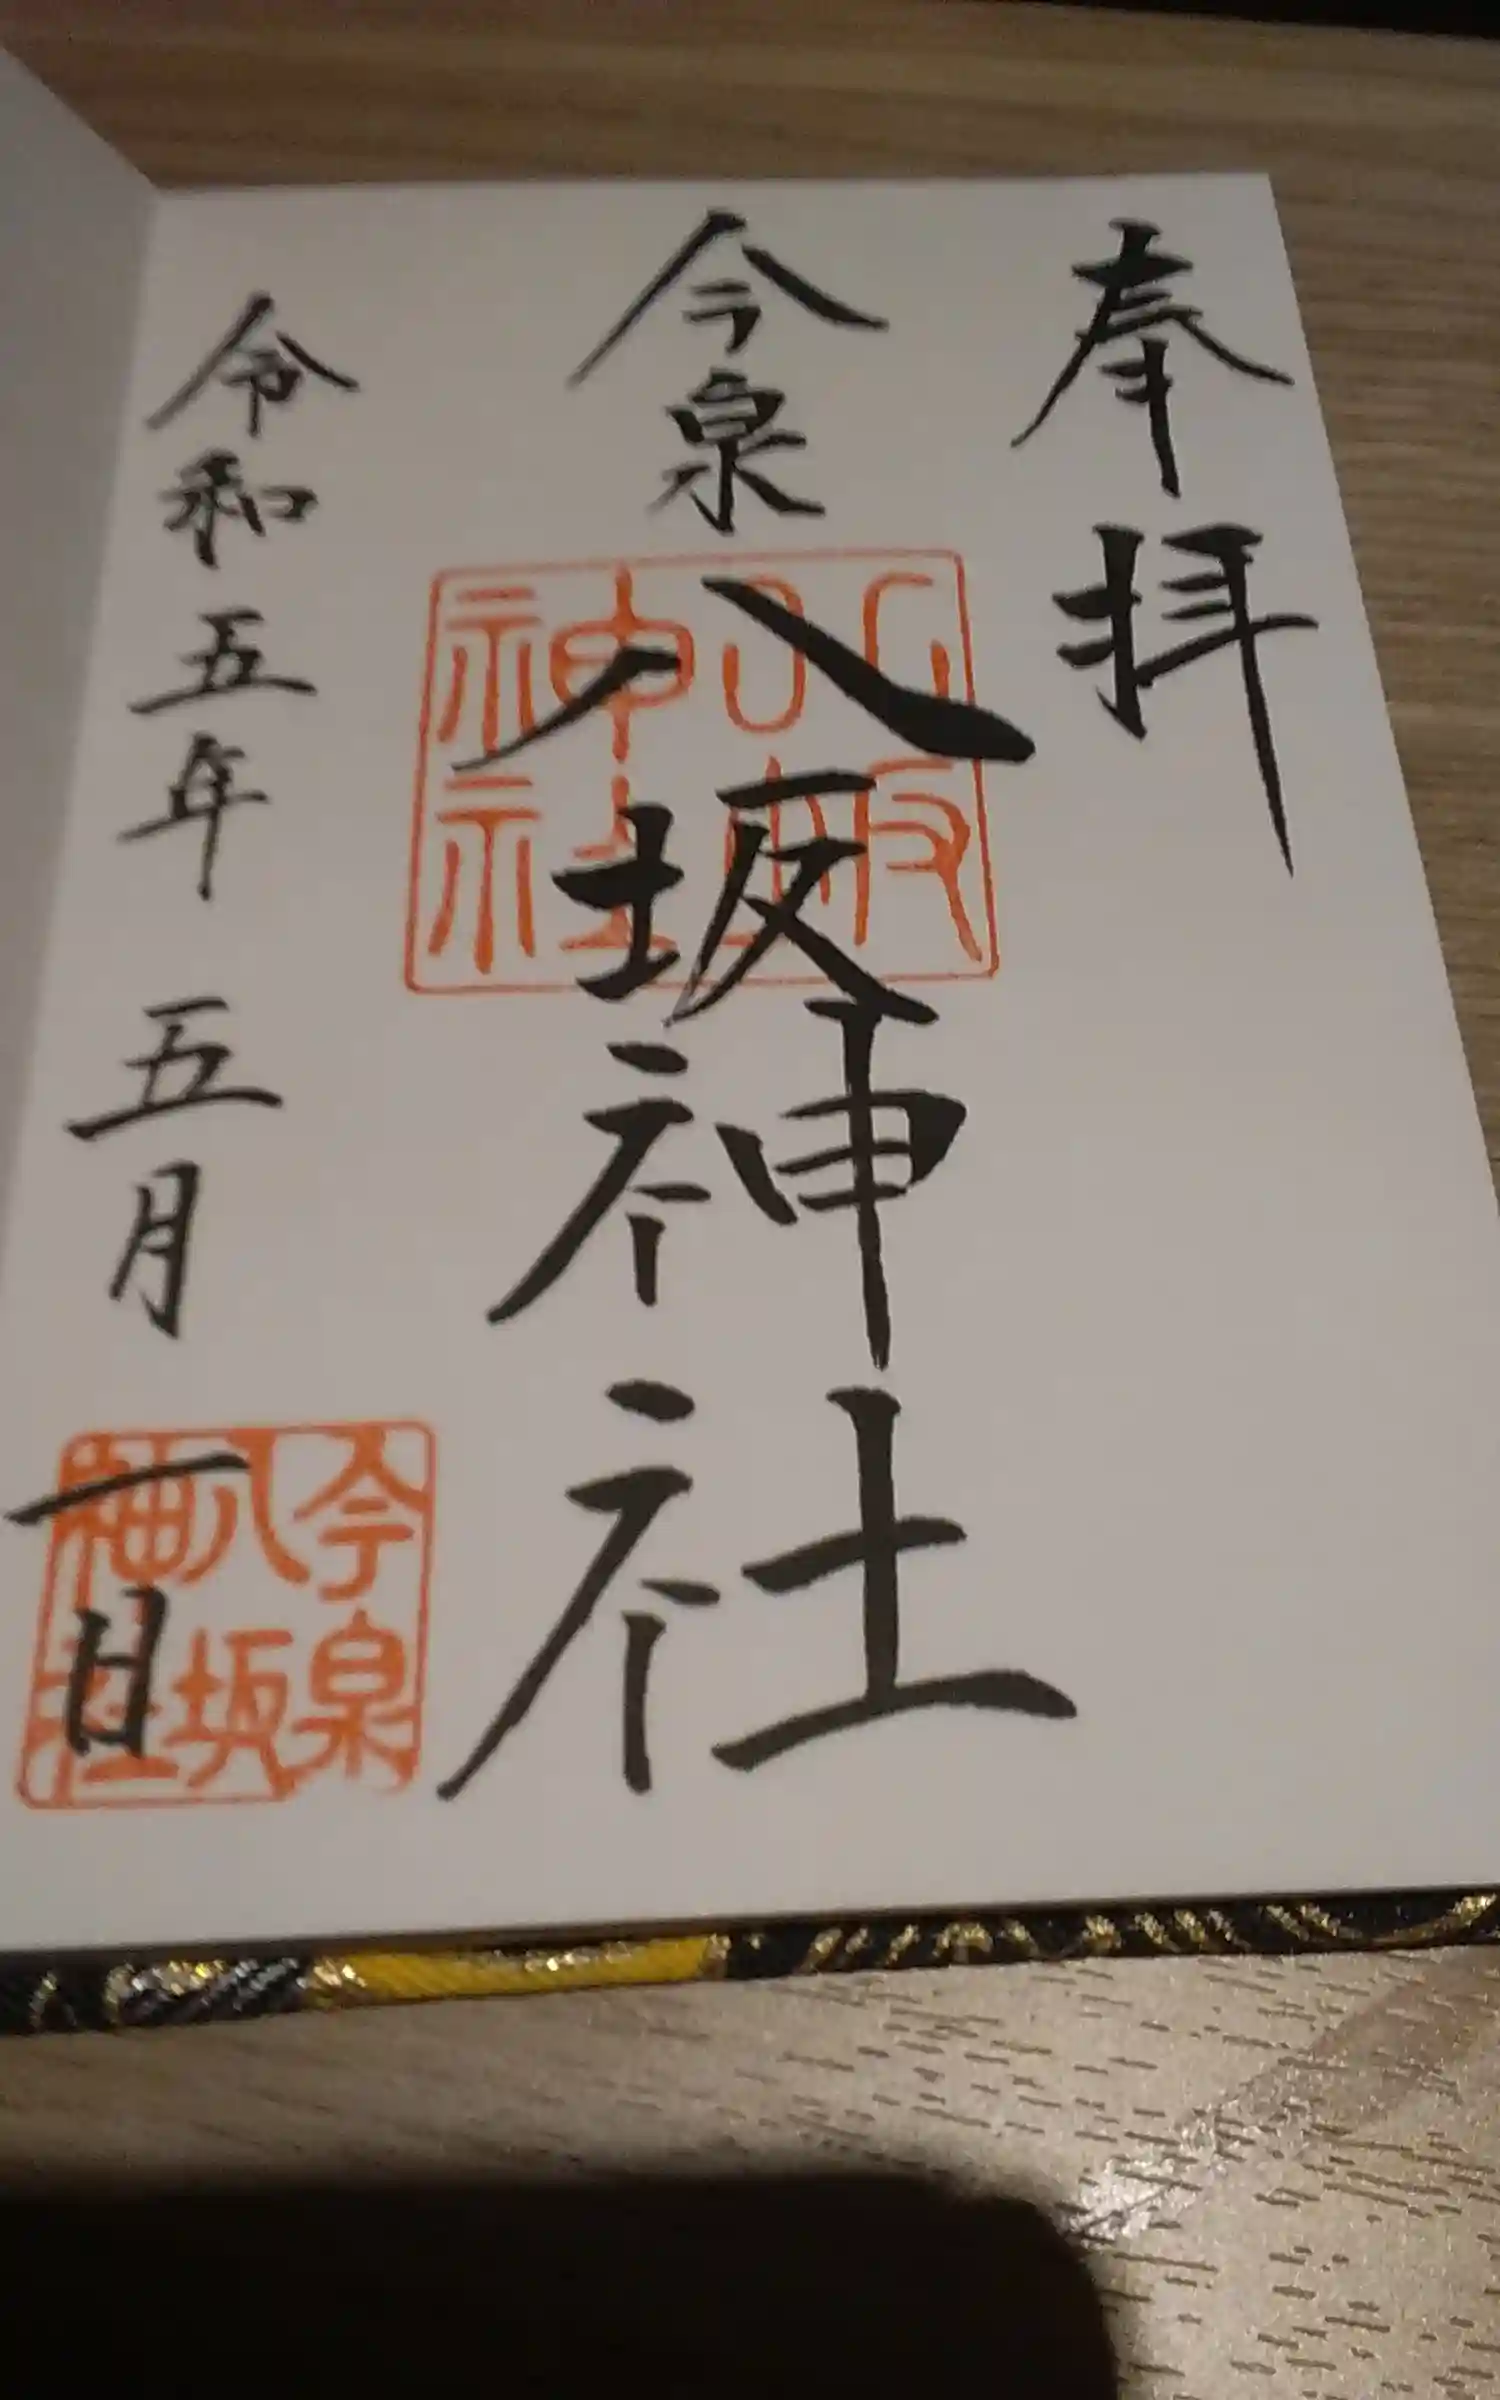 奉拝
今泉
八坂神社
八坂
神社
令和五年 五月 一日
今泉
八坂
神社